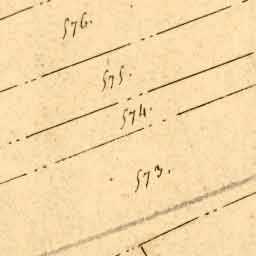 576.
575.
574.
573.